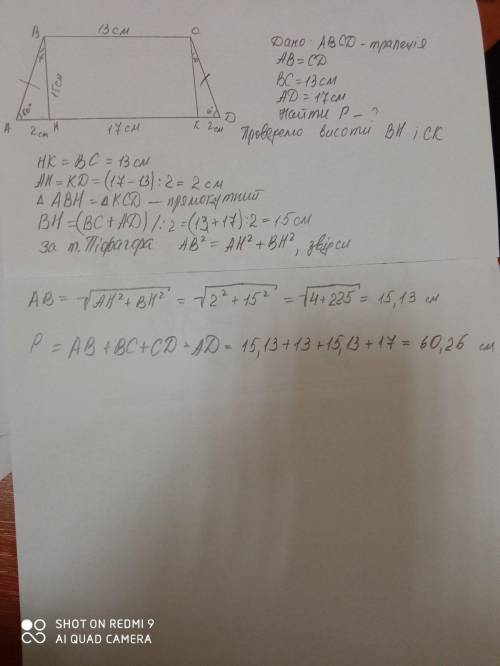 13 см
B C
15 см
60° 6°
A 2 см H 17 см K 2 см D
Дано: ABCD - трапеція
AB = CD
BC = 13 см
AD = 17 см
Найти P - ?
Проведемо висоти BH і CK
HK = BC = 13 см
AH = KD = (17-13):2 = 2 см
△ ABH = △ KCD - прямокутний
BH = (BC + AD) /:2 = (13+17):2 = 15 см
За т. Піфагора AB² = AH² + BH², звідси
AB = √AH² + BH² = √2² + 15² = √4+225 = 15,13 см
P = AB + BC + CD + AD = 15,13 + 13 + 15,13 + 17 = 60,26 см
SHOT ON REDMI 9
AI QUAD CAMERA